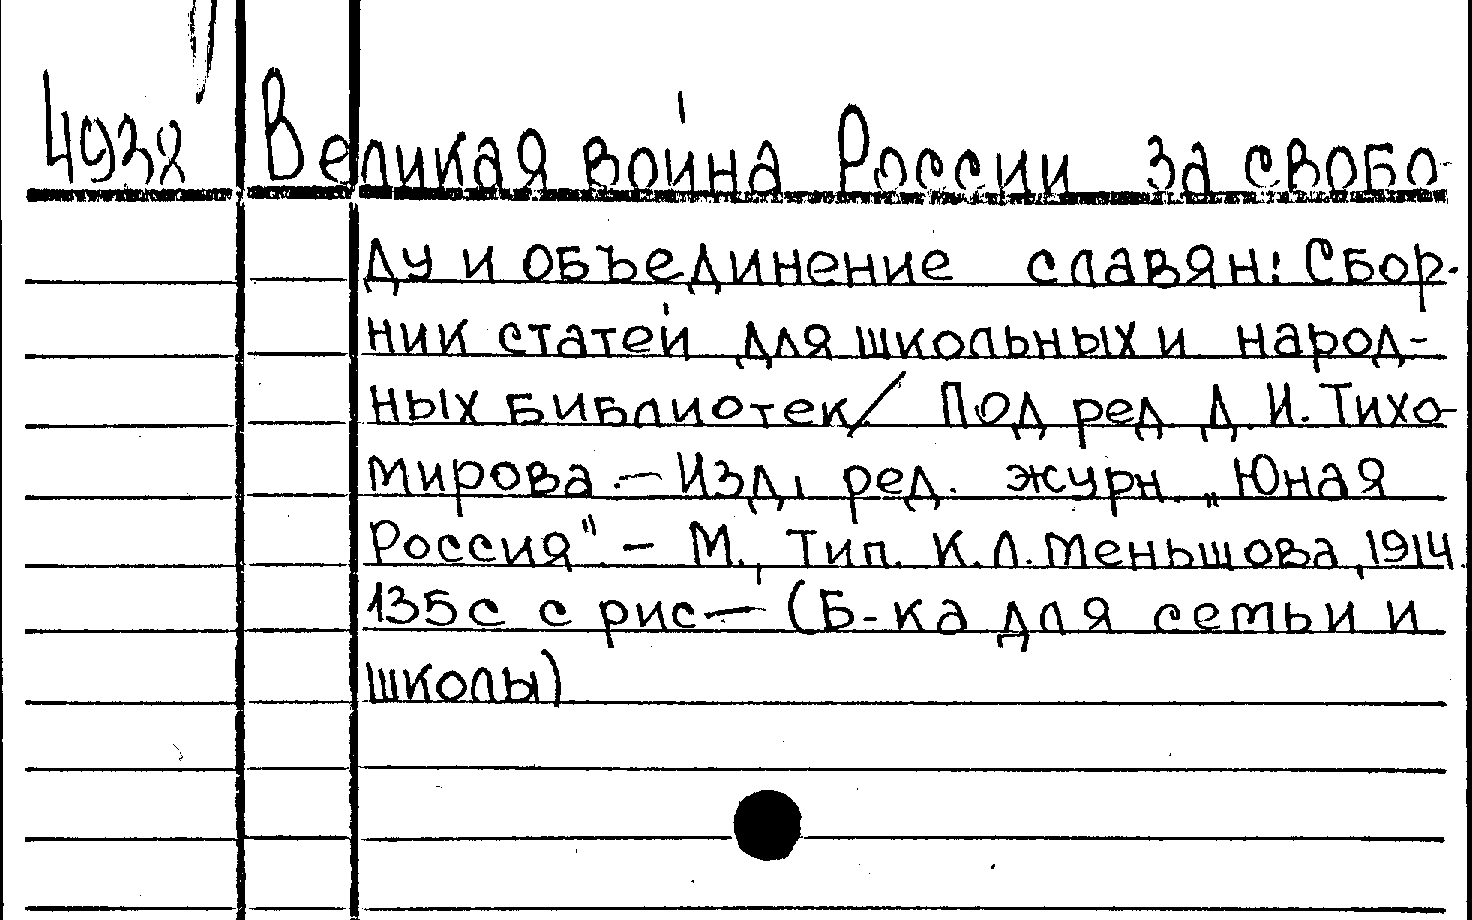 4938 Великая война России за свобо-
ду и объединение славян: Сбор-
ник статей для школьных и народ-
ных библиотек / Под ред. Д. И. Тихо-
мирова. — Изд. ред. журн. „Юная
Россия". — М., Тип. К. Л. Меньшова, 1914.
135 с с рис — (Б-ка для семьи и
школы)